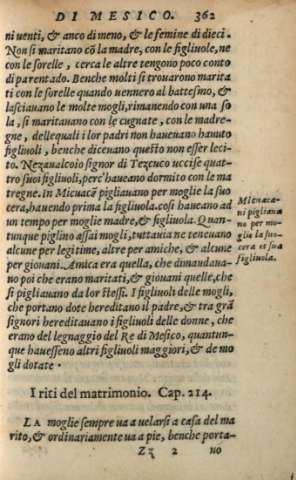 DI MESICO. 362
ni uenti, & anco di meno, & le femine di dieci.
Non si maritano cō la madre, con le figliuole, ne
con le sorelle, cerca le altre tengono poco conto
di parentado. Benche molti si trouarono marita
ti con le sorelle quando uennero al battesmo, &
lasciauano le molte mogli, rimanendo con una so
la, si maritauano con le cugnate, con le madre-
gne, dellequali i lor padri non haueuano hauuto
figliuoli, benche diceuano questo non esser leci-
to. Nezaualcoio signor di Tezcuco uccise quat
tro suoi figliuoli, perc'haueano dormito con le ma
tregne. In Micuacē pigliauano per moglie la suo
cera, hauendo prima la figliuola. così haueano ad
un tempo per moglie madre, & figliuola. Quan-
tunque piglino assai mogli, tuttauia ne teneuano
alcune per legitime, altre per amiche, & alcune
per giouani. Amica era quella, che dimandaua-
no poi che erano maritati, & giouani quelle, che
si pigliauano da lor stessi. I figliuoli delle mogli,
che portano dote hereditano il padre, & tra grā
signori hereditauano i figliuoli delle donne, che
erano del legnaggio del Re di Mesico, quantun-
que hauessero altri figliuoli maggiori, & de mo
gli dotate.
Mienaca-
ni pigliaua
no per mo-
glie la suo-
cera et sua
figliuola.
I riti del matrimonio. Cap. 214.
LA moglie sempre ua a uelarsi a casa del ma
rito, & ordinariamente ua a pie, benche porta-
Zz 2 no